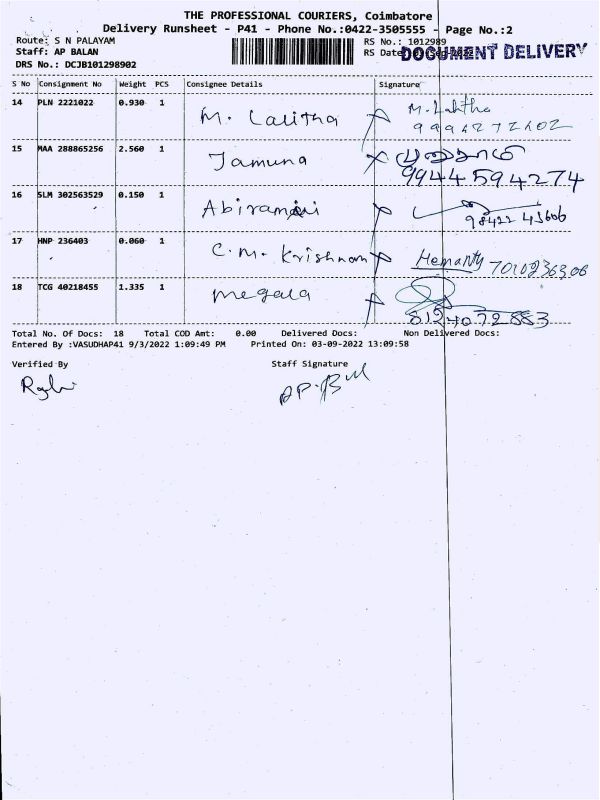 THE PROFESSIONAL COURIERS, Coimbatore
Delivery Runsheet - P41 - Phone No.:0422-3505555 - Page No.:2
Route: S N PALAYAM RS No.: 1012989
Staff: AP BALAN RS Date DOCUMENT DELIVERY
DRS No.: DCJB101298902
S No Consignment No Weight PCS Consignee Details Signature
14 PLN 2221022 0.930 1 M. Lalitha M. Lalitha
15 MAA 288865256 2.560 1 Jamuna
9944594274
16 SLM 302563529 0.150 1 Abirami
98422 45606
17 HNP 236403 0.060 1 C.M. Krishnan
18 TCG 40218455 1.335 1 Megala
Total No. Of Docs: 18 Total COD Amt: 0.00 Delivered Docs: Non Delivered Docs:
Entered By :VASUDHAP41 9/3/2022 1:09:49 PM Printed On: 03-09-2022 13:09:58
Verified By Staff Signature